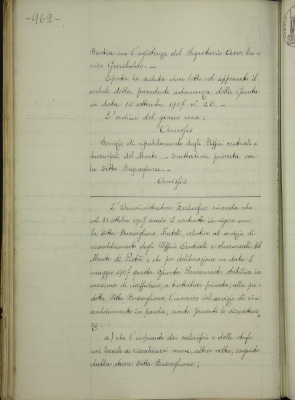 -962-
Bestia con l'assistenza del Segretario Avv.
Garibaldo. -
Aperta la seduta viene letto ed approvato il
verbale della precedente adunanza della Giunta
in data 10 settembre 1907 n. 26. -
L'ordine del giorno reca:
Omissis
Servizio di riscaldamento degli Uffici centrali e
succursali del Monte. - Trattativa privata con
la Ditta Buscaglione. -
Omissis
L'Amministratore ricorda che
col 31 ottobre 1907 scade il contratto in vigore con
la Ditta Buscaglione, Fratelli, relativo al servizio di
riscaldamento degli Uffici Centrali e Succursali del
Monte di Pietà e che per deliberazione in data
maggio 1907 questa Giunta Permanente stabiliva in
massima di riaffidare, a trattativa privata, alla pre=
detta Ditta Buscaglione, l'incarico del servizio di ri=
scaldamento in parola, avuti presenti le circostan=
ze:
a) che l'impianto dei caloriferi e delle stufe
nei locali a riscaldarsi venne, altra volta, eseguito
dalla stessa Ditta Buscaglione;